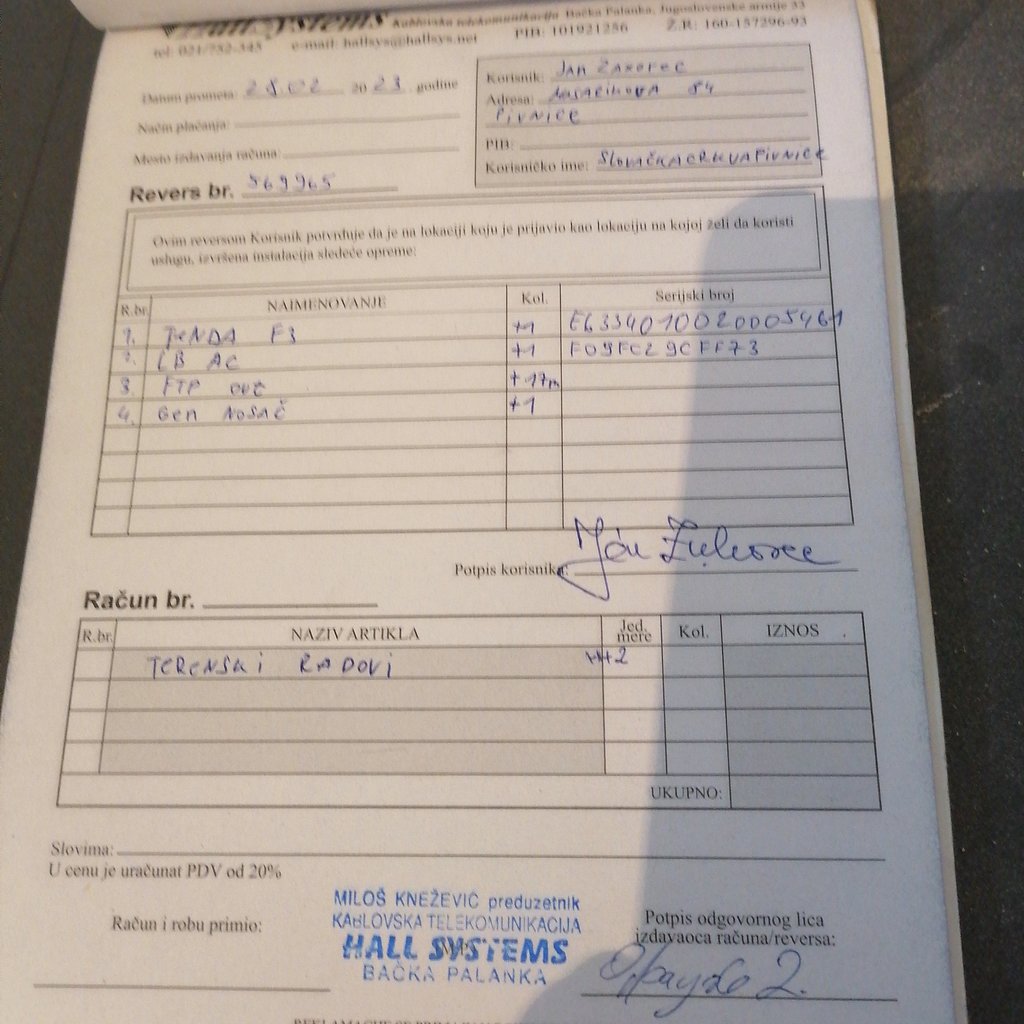 Hall Systems Kablovska telekomunikacija Bačka Palanka, Jugoslovenske armije 33
tel: 021/752-345 e-mail: hallsys@hallsys.net PIB: 101921256 Ž.R: 160-157296-93
Datum prometa: 28.02 2023. godine
Način plaćanja:
Mesto izdavanja računa:
Korisnik: JAN
Adresa: 84
PIVNICE
PIB:
Korisničko ime: SLOVAČKACRKVAPIVNICE
Revers br. 569965
Ovim reversom Korisnik potvrđuje da je na lokaciji koju je prijavio kao lokaciju na kojoj želi da koristi
uslugu, izvršena instalacija sledeće opreme:
R.br. NAIMENOVANJE Kol. Serijski broj
1. TENDA F3 +1 E6334010020005461
2. LB AC +1 F09FC29CFF73
3. FTP OUT +17m
4. GEM NOSAČ +1
Potpis korisnika:
Račun br.
R.br. NAZIV ARTIKLA Jed. mere Kol. IZNOS
TERENSKI RADOVI
UKUPNO:
Slovima:
U cenu je uračunat PDV od 20%
Račun i robu primio:
MILOŠ KNEŽEVIĆ preduzetnik
KABLOVSKA TELEKOMUNIKACIJA
HALL SYSTEMS
BAČKA PALANKA
Potpis odgovornog lica
izdavaoca računa/reversa: